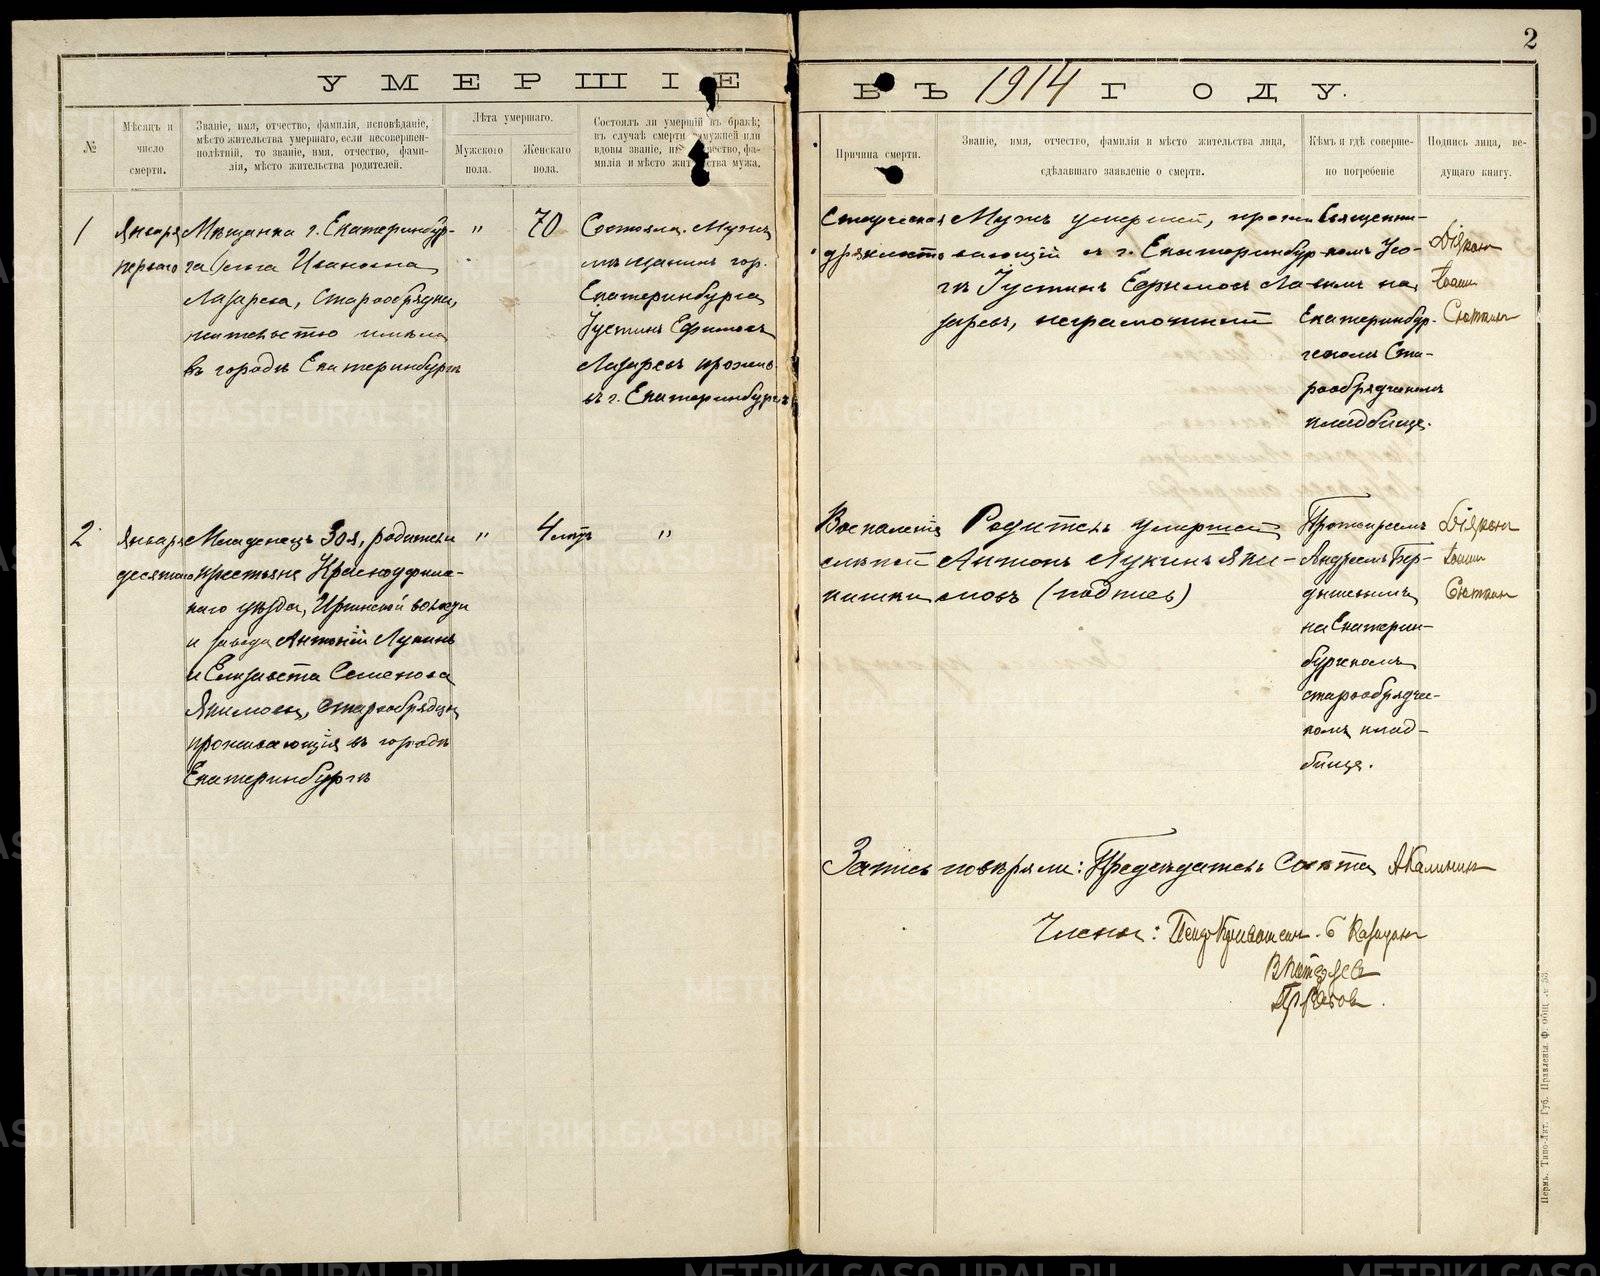 2
УМЕРШІЕ ВЪ 1914 ГОДУ.
№
Мѣсяцъ и
число
смерти.
Званіе, имя, отчество, фамилія, исповѣданіе,
мѣсто жительства умершаго, если несовершен-
нолѣтній, то званіе, имя, отчество, фами-
лія, мѣсто жительства родителей.
Лѣта умершаго.
Мужского
пола.
Женскаго
пола.
Состоялъ ли умершій въ бракѣ;
въ случаѣ смерти замужней или
вдовы званіе, имя, отчество, фа-
милія и мѣсто жительства мужа.
Причина смерти.
Званіе, имя, отчество, фамилія и мѣсто жительства лица,
сдѣлавшаго заявленіе о смерти.
Кѣмъ и гдѣ соверше-
но погребеніе
Подпись лица, ве-
дущаго книгу.
1
Января
перваго
Мѣщанка г. Екатеринбур-
га Ольга Ивановна
Лазарева, старообрядка,
жительство имѣла
въ городѣ Екатеринбургѣ
"
70
Состояла. Мужъ
мѣщанинъ гор.
Екатеринбурга
Іустинъ Ефимовъ
Лазаревъ прожив.
въ г. Екатеринбургѣ
Старческая
дряхлость
Мужъ умершей, прожи-
вающій въ г. Екатеринбур-
гѣ Іустинъ Ефимовъ Ла-
заревъ, неграмотный
Священни-
комъ
на
Екатеринбур-
гскомъ Ста-
рообрядческомъ
кладбище.
Діяконъ
Іоаннъ
2
Января
десятаго
Младенецъ Зоя, родители
крестьяне Красноуфимс-
каго уѣзда, Иргинской волости
и завода Антоній Лукинъ
и Елизавета Семенова
Якимовы, старообрядцы,
проживающія въ городѣ
Екатеринбургѣ
"
4 мѣс.
"
Воспаленіе
слѣпой
кишки
Родитель умершей
Антонъ Лукинъ Яки-
мовъ (подпись)
Протоіереемъ
Андреемъ Бер-
дышевымъ
на Екатерин-
бургскомъ
старообрядчес-
комъ клад-
бище.
Діяконъ
Іоаннъ
Запись повѣряли: Предсѣдатель Совѣта А Калинин
Члены:
Пермь. Типо-Лит. Губ. Правленія. Ф. общ.
METRIKI.GASO-URAL.RU